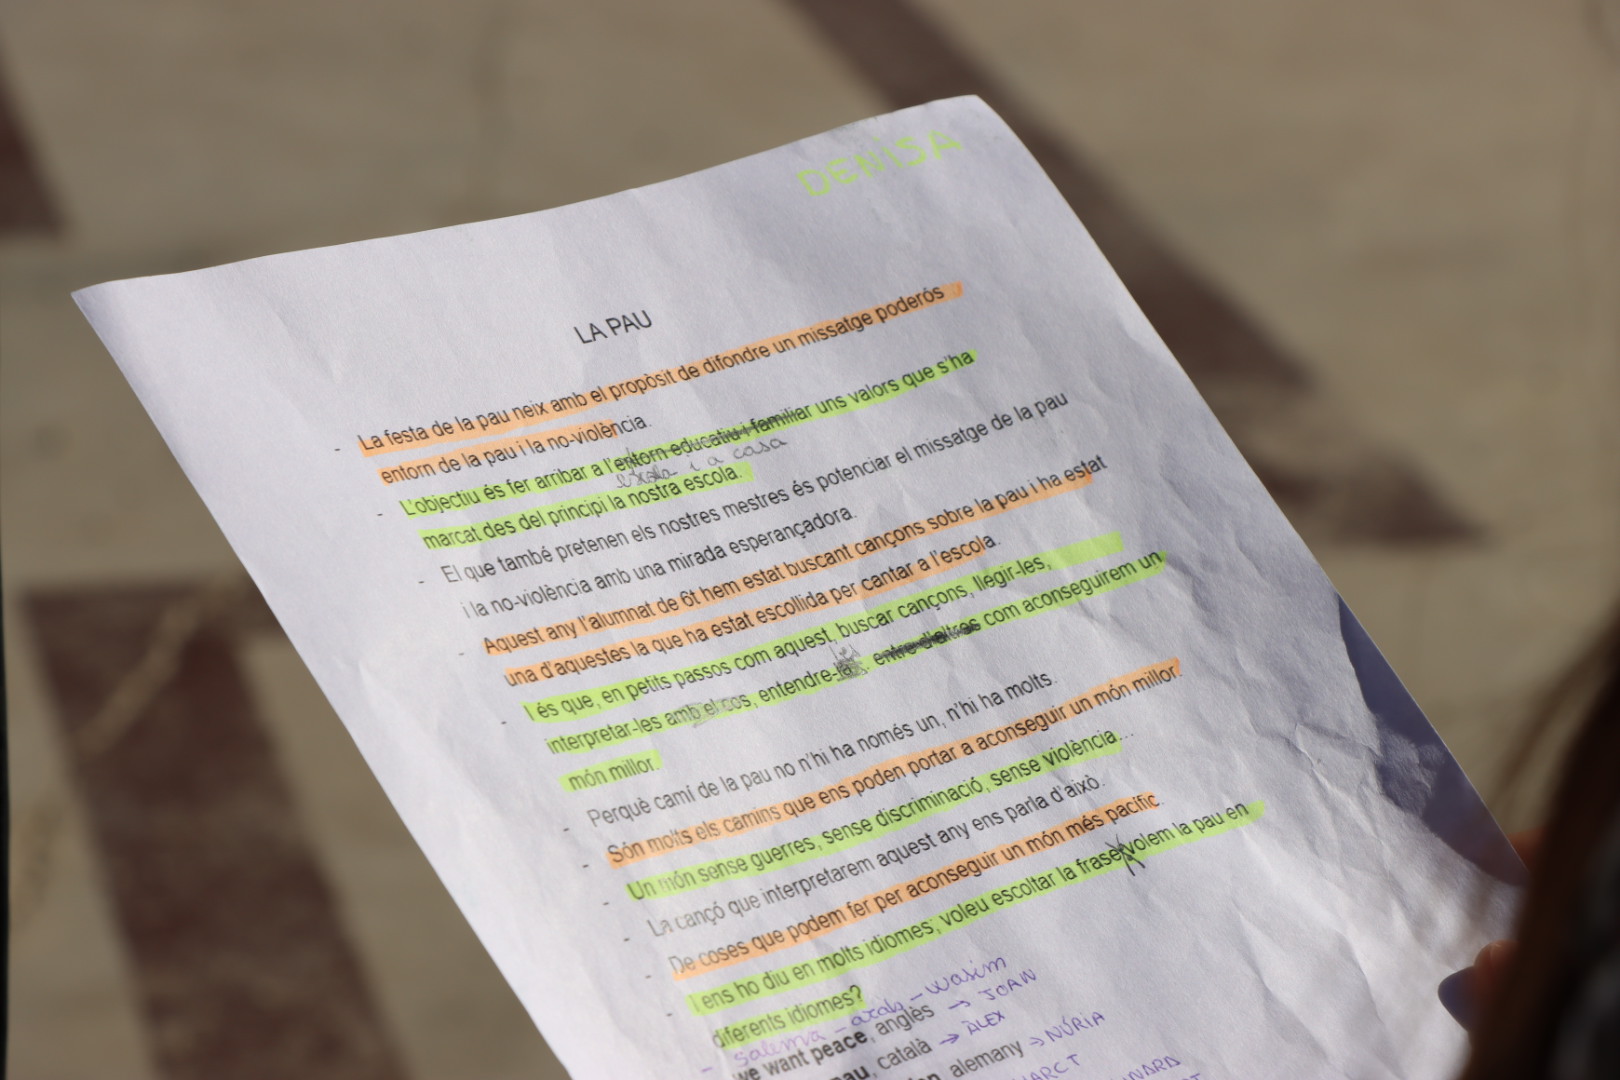 DENISA
LA PAU
- La festa de la pau neix amb el propòsit de difondre un missatge poderós
entorn de la pau i la no-violència.
- L'objectiu és fer arribar a l'entorn educatiu i familiar uns valors que s'ha
escola i a casa
marcat des del principi la nostra escola.
- El que també pretenen els nostres mestres és potenciar el missatge de la pau
i la no-violència amb una mirada esperançadora.
- Aquest any l'alumnat de 6t hem estat buscant cançons sobre la pau i ha estat
una d'aquestes la que ha estat escollida per cantar a l'escola.
- I és que, en petits passos com aquest, buscar cançons, llegir-les,
interpretar-les amb el cos, entendre-la entre d'altres com aconseguirem un
món millor.
- Perquè camí de la pau no n'hi ha només un, n'hi ha molts.
- Són molts els camins que ens poden portar a aconseguir un món millor.
- Un món sense guerres, sense discriminació, sense violència...
- La cançó que interpretarem aquest any ens parla d'això.
- De coses que podem fer per aconseguir un món més pacífic.
- I ens ho diu en molts idiomes; voleu escoltar la frase volem la pau en
diferents idiomes?
- salema - arab - wasim
we want peace, anglès → JOAN
pau, català → ÀLEX
alemany → NÚRIA